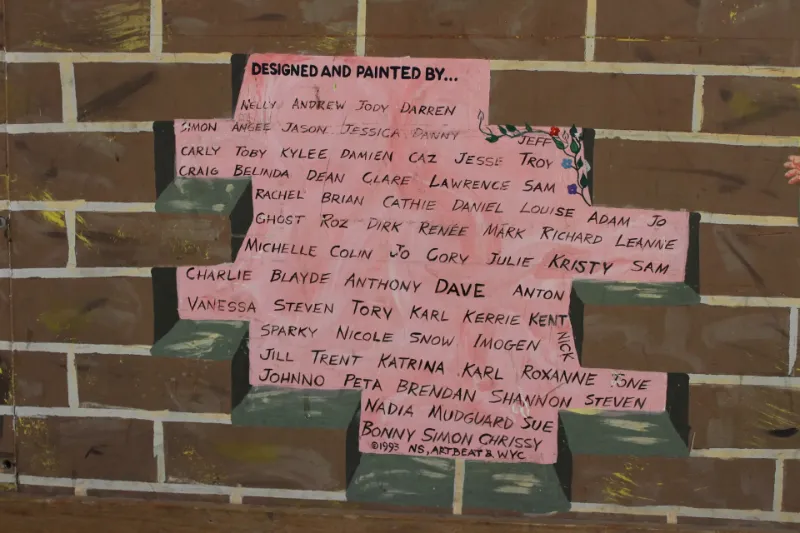 DESIGNED AND PAINTED BY...
NELLY ANDREW JODY DARREN
SIMON ANGEE JASON JESSICA DANNY JEFF
CARLY TOBY KYLEE DAMIEN CAZ JESSE TROY
CRAIG BELINDA DEAN CLARE LAWRENCE SAM
RACHEL BRIAN CATHIE DANIEL LOUISE ADAM JO
GHOST ROZ DIRK RENÉE MARK RICHARD LEANNE
MICHELLE COLIN JO CORY JULIE KRISTY SAM
CHARLIE BLAYDE ANTHONY DAVE ANTON
VANESSA STEVEN TORY KARL KERRIE KENT
SPARKY NICOLE SNOW IMOGEN NICK
JILL TRENT KATRINA KARL ROXANNE
JOHNNO PETA BRENDAN SHANNON STEVEN
NADIA MUDGUARD SUE
BONNY SIMON CHRISSY
©1993 NS, ARTBEAT & WYC